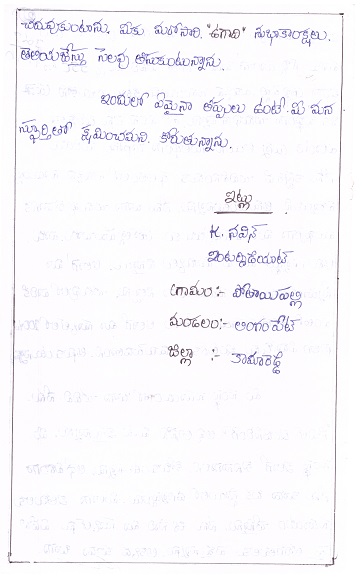 చదువుకుంటాను. మీకు మరోసారి. "ఉగాది" సుభాకాంక్షలు.
తెలియజేస్తూ సెలవు తీసుకుంటున్నాను.
ఇందులో ఏమైనా తప్పులు ఉంటే మీ మన
స్ఫూర్తితో క్షమించమని. కోరుతున్నాను.
ఇట్లు
K. నవీన్
ఇంటర్మీడియట్
గ్రామం:- పోతాయిపల్లి
మండలం:- లింగంపేట్
జిల్లా :- కామారెడ్డి